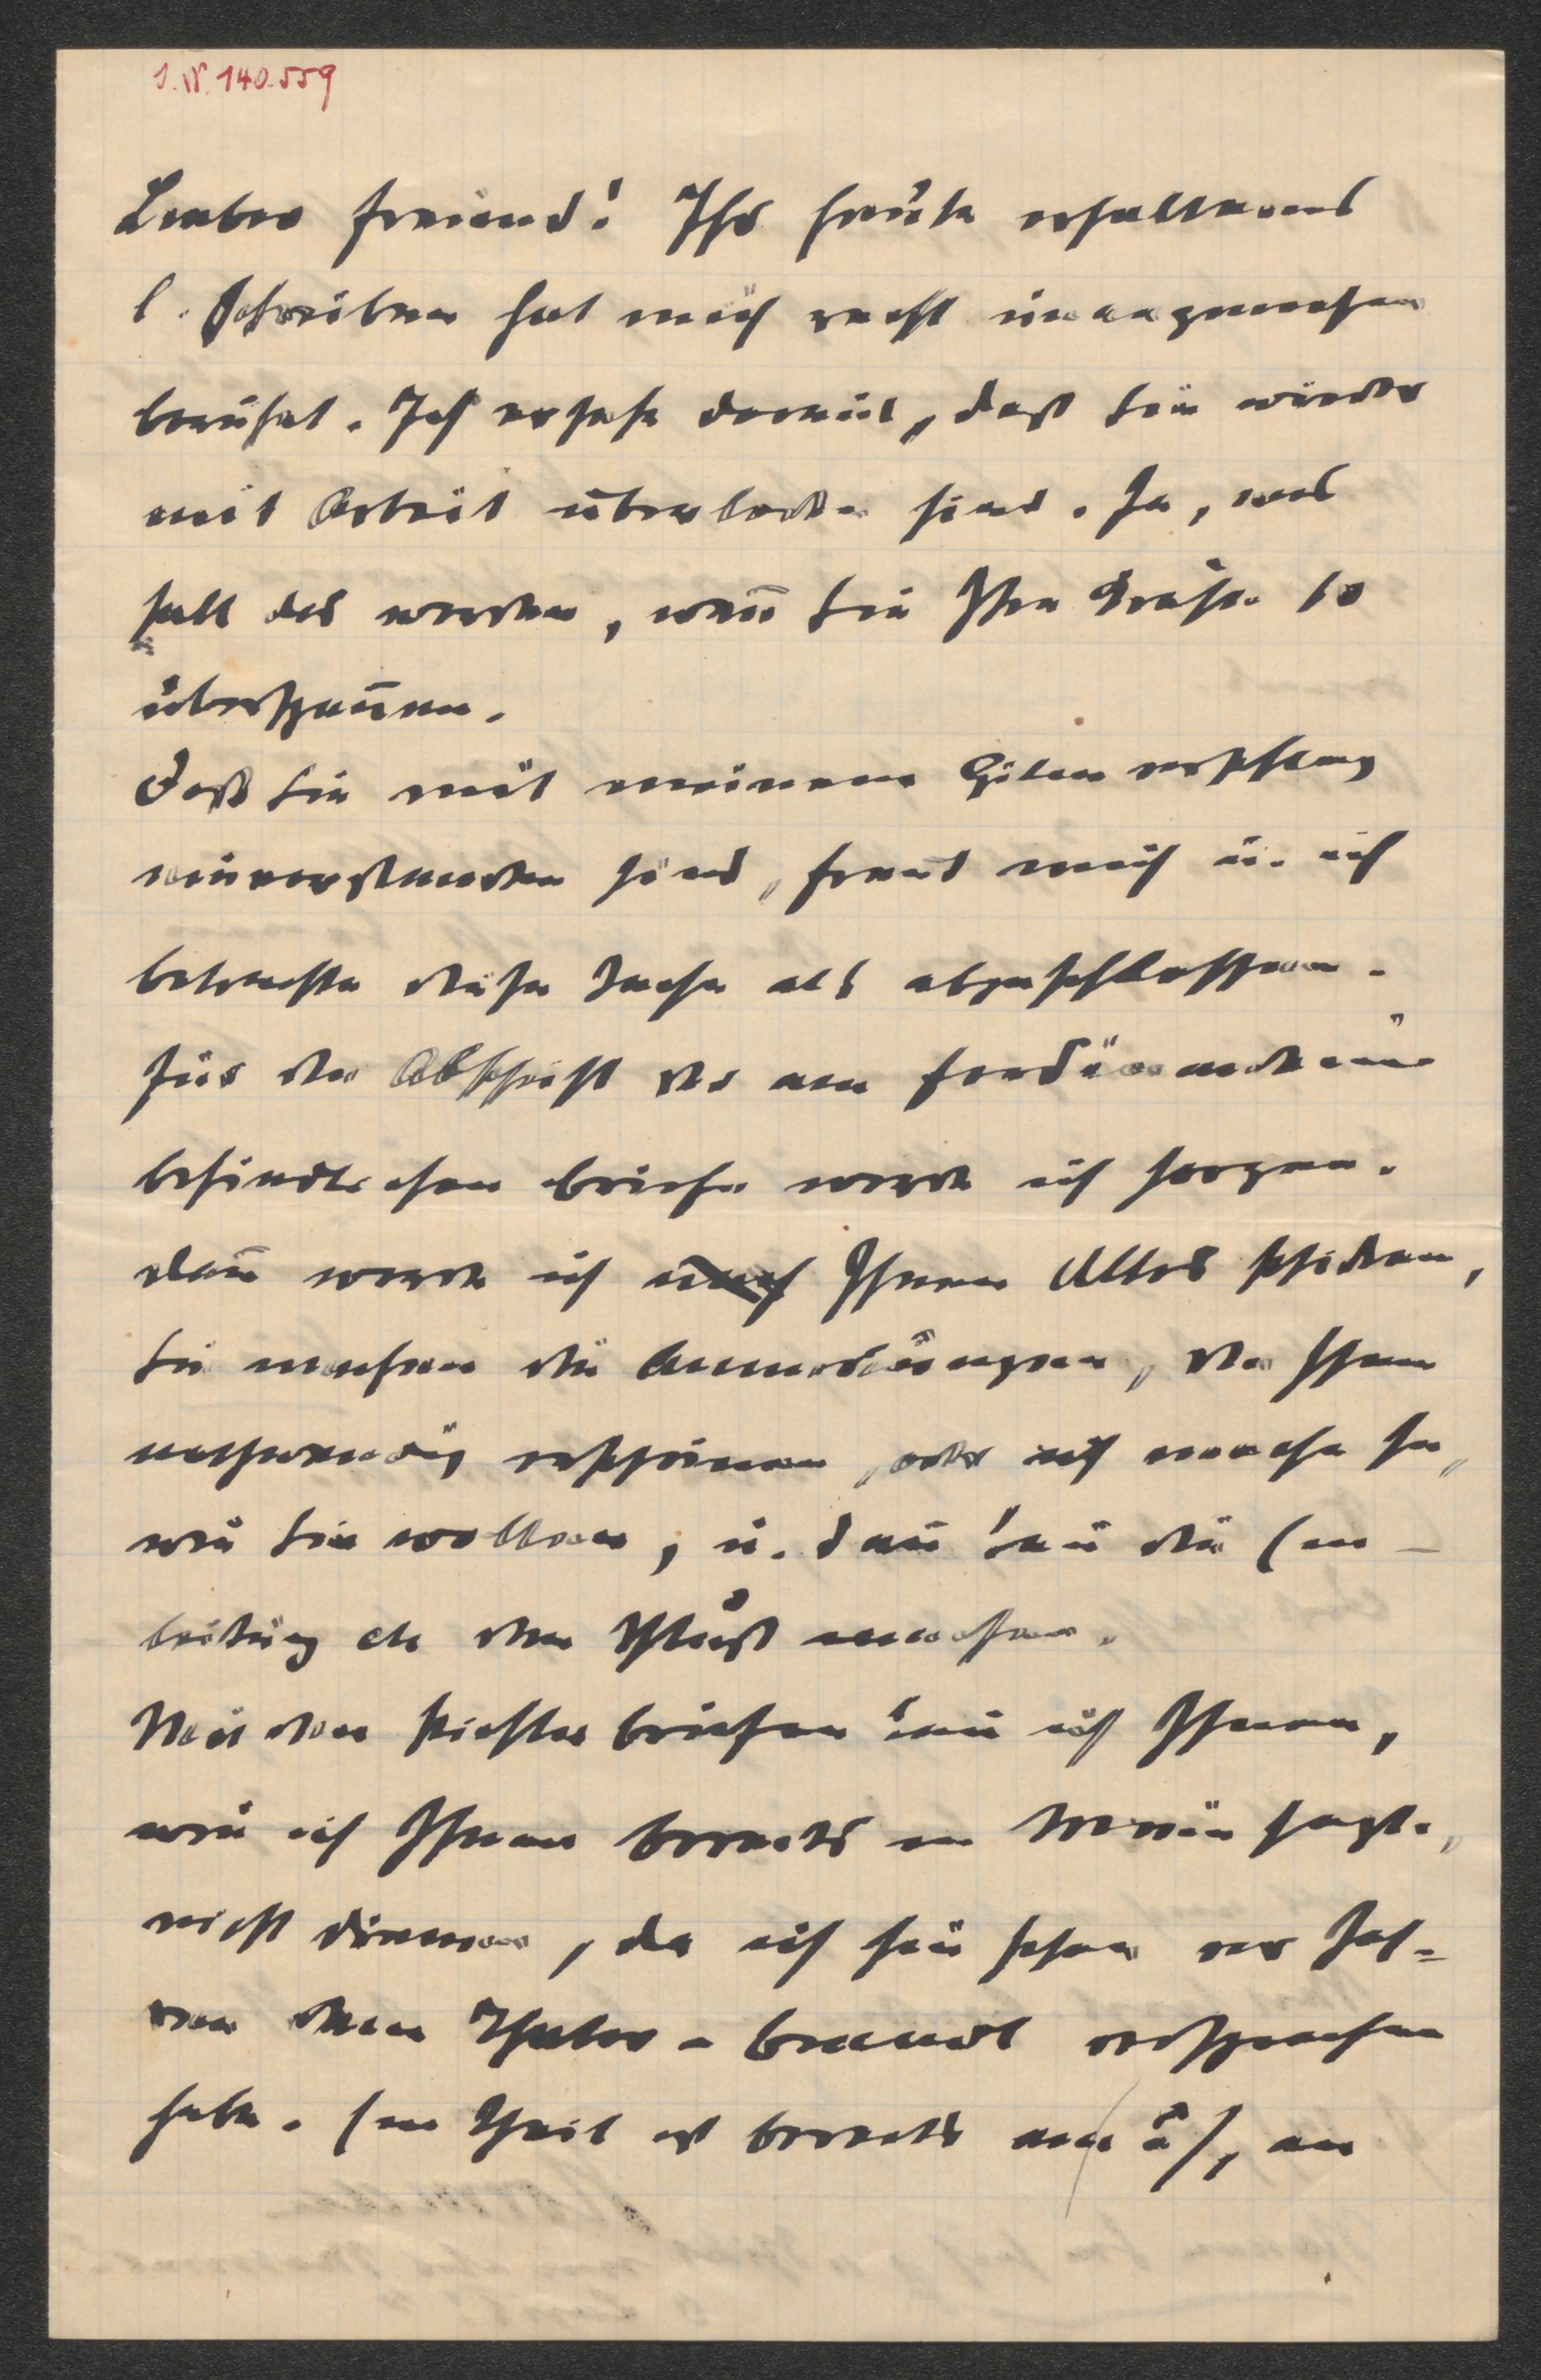 I.N. 140.559
Lieber Freund! Ihr heute erhaltenes
l. Schreiben hat mich recht unangenehm
berührt. Ich ersehe daraus, daß Sie wieder
mit Arbeit überladen sind. Ja, was
soll das werden, wenn̄ Sie Ihre Kräfte so
überspan̄en.
Daß Sie mit meinem
einverstanden sind, freut mich u. ich
betrachte diese Sache als abgeschlossen.
Für die Abschrift der am Ferdinandeum
befindlichen Briefe werde ich sorgen.
Dan̄ werde ich Ihnen Alles schicken,
Sie machen die Anmerkungen, die Ihnen
nothwendig erscheinen, oder ich mache sie,
wie Sie wollen, u. dan̄ kan̄ die Ein-
leitung etc den Schluß machen.
Mit den Pichler Briefen kan̄ ich Ihnen,
wie ich Ihnen bereits in Wien sagte,
nicht dienen, da ich sie schon vor Jah-
ren dem Thaler-Brandl versprochen
habe. Ein Theil ist bereits an